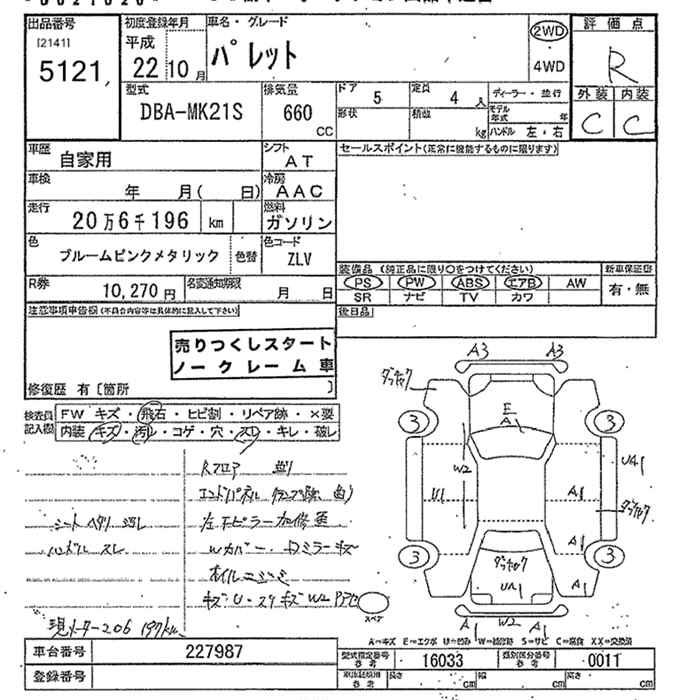 出品番号
[2141]
5121
初度登録年月
平成
22 10月
車名・グレード
パレット
2WD
・
4WD
評価点
R
外装 内装
C C
型式
DBA-MK21S
排気量
660
CC
ドア
5
定員
4 人
形状
積数
kg
ディーラー・並行
モデル年式 年
ハンドル 左・右
車歴
自家用
シフト
AT
車検
年 月( 日)
冷房
AAC
走行
20万6千196 km
燃料
ガソリン
色
ブルームピンクメタリック
色替
色コード
ZLV
R券
10,270円
名変通知期限
月 日
セールスポイント(正常に機能するものに限ります)
装備品 (純正品に限り○をつけてください)
新車保証書
PS PW ABS エアB AW
SR ナビ TV カワ
有・無
後日品
注意事項申告欄(不具合内容等は具体的に記入して下さい)
売りつくしスタート
ノークレーム車
修復歴 有〔箇所 〕
検査員記入欄
FW キズ・飛石・ヒビ割・リペア跡・×要
内装 キズ・汚レ・コゲ・穴・スレ・キレ・破レ
Rフロア 曲り
シートヘタリ 汚レ
ハンドル スレ
Wカバー・Dミラーキズ
オイルニジミ
現メーター206197km
A3 A3
E
A1
3 3
W2
U1
A1
UA1
A1
3 3
UA1
A1
A1 W2 A1
スペア
A=キズ E=エクボ U=凹み W=補修跡 S=サビ C=腐食 XX=交換済
車台番号
227987
登録番号
型式指定番号
参考
16033
類別区分番号
参考
0011
長さ cm
幅 cm
高さ cm